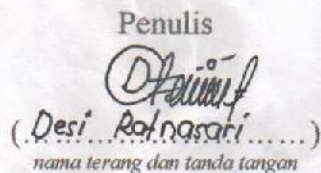 Penulis
(Desi Ratnasari......)
nama terang dan tanda tangan